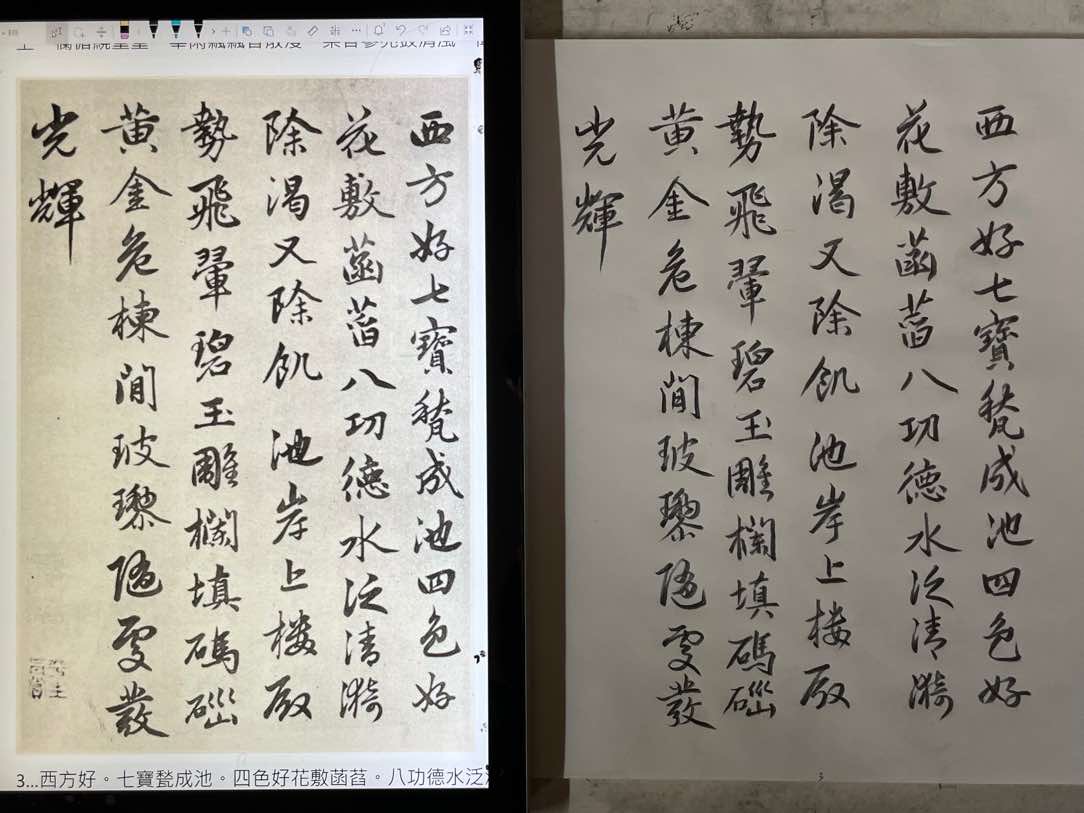 西方好七寶甃成池四色好
花敷菡萏八功德水泛清漪
除渴又除飢 池岸上樓殿
勢飛翬碧玉雕欄填碼碯
黃金危棟間玻瓈隨處發
光輝
3...西方好。七寶甃成池。四色好花敷菡萏。八功德水泛
西方好七寶甃成池四色好
花敷菡萏八功德水泛清漪
除渴又除飢 池岸上樓殿
勢飛翬碧玉雕欄填碼碯
黃金危棟間玻瓈隨處發
光輝
3